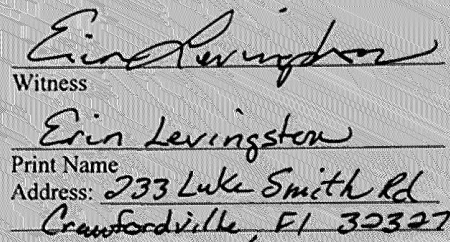 Erin Levingston
Witness
Erin Levingston
Print Name
Address: 233 Luke Smith Rd
Crawfordville, Fl 32327